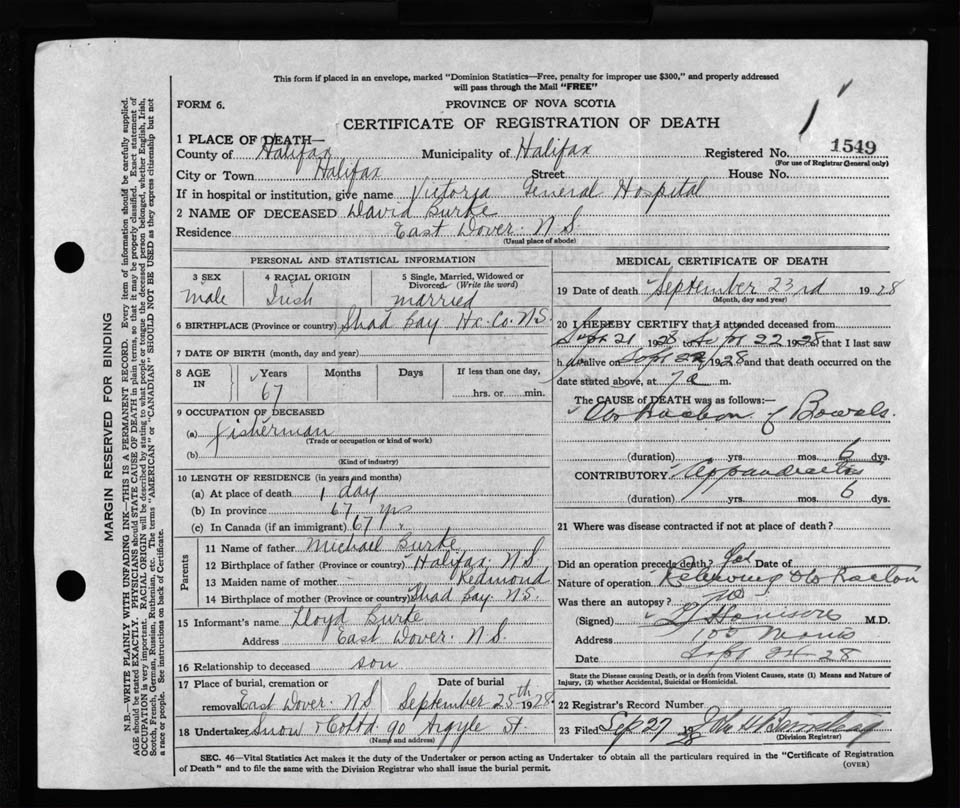 This form if placed in an envelope, marked "Dominion Statistics—Free, penalty for improper use $300," and properly addressed
will pass through the Mail "FREE"
FORM 6.
PROVINCE OF NOVA SCOTIA
CERTIFICATE OF REGISTRATION OF DEATH
1
1 PLACE OF DEATH—
County of Halifax Municipality of Halifax Registered No. 1549
(For use of Registrar General only)
City or Town Halifax Street House No.
If in hospital or institution, give name Victoria General Hospital
2 NAME OF DECEASED David Burke
Residence East Dover. N S.
(Usual place of abode)
PERSONAL AND STATISTICAL INFORMATION
3 SEX
male
4 RACIAL ORIGIN
Irish
5 Single, Married, Widowed or
Divorced. (Write the word)
married
6 BIRTHPLACE (Province or country) Shad Bay Hx. Co. N.S.
7 DATE OF BIRTH (month, day and year)
8 AGE
IN
Years
67
Months
Days
If less than one day,
hrs. or min.
9 OCCUPATION OF DECEASED
(a) Fisherman
(Trade or occupation or kind of work)
(b)
(Kind of industry)
10 LENGTH OF RESIDENCE (in years and months)
(a) At place of death 1 day
(b) In province 67 yrs
(c) In Canada (if an immigrant) 67 y
Parents
11 Name of father Michael Burke
12 Birthplace of father (Province or country) Halifax N S
13 Maiden name of mother Redmond
14 Birthplace of mother (Province or country) Shad Bay. N.S.
15 Informant's name Lloyd Burke
Address East Dover. N S.
16 Relationship to deceased son
17 Place of burial, cremation or
removal East Dover. N S
Date of burial
September 25th 1928
18 Undertaker Snow & Co Ltd 90 Argyle St.
(Name and address)
MEDICAL CERTIFICATE OF DEATH
19 Date of death September 23rd 1928
(Month, day and year)
20 I HEREBY CERTIFY that I attended deceased from
Sept 21 1928 to Sept 22 1928, that I last saw
h alive on Sept 1928 and that death occurred on the
date stated above, at 7 a m.
The CAUSE of DEATH was as follows:—
Obstruction of Bowels.
(duration) yrs. mos. 6 dys.
CONTRIBUTORY Appendicitis
(duration) yrs. mos. 6 dys.
21 Where was disease contracted if not at place of death?
Did an operation precede death? Yes Date of
Nature of operation Relieving Obstruction
Was there an autopsy? no
(Signed) M.D.
Address 100 Morris
Date Sept 24 - 28
State the Disease causing Death, or in death from Violent Causes, state (1) Means and Nature of
Injury, (2) whether Accidental, Suicidal or Homicidal.
22 Registrar's Record Number
23 Filed Sep 27 1928 John H
(Division Registrar)
SEC. 46—Vital Statistics Act makes it the duty of the Undertaker or person acting as Undertaker to obtain all the particulars required in the "Certificate of Registration
of Death" and to file the same with the Division Registrar who shall issue the burial permit.
(OVER)
MARGIN RESERVED FOR BINDING
N.B.—WRITE PLAINLY WITH UNFADING INK—THIS IS A PERMANENT RECORD. Every item of information should be carefully supplied.
AGE should be stated EXACTLY. PHYSICIANS should STATE CAUSE OF DEATH in plain terms, so that it may be properly classified. Exact statement of
OCCUPATION is very important. RACIAL ORIGIN will be described by stating to what people or tongue the deceased person belonged, whether English, Irish,
Scotch, French, German, Russian, Ruthenian, etc. The terms "AMERICAN" or "CANADIAN" SHOULD NOT BE USED as they express citizenship but not
a race or people. See instructions on back of Certificate.